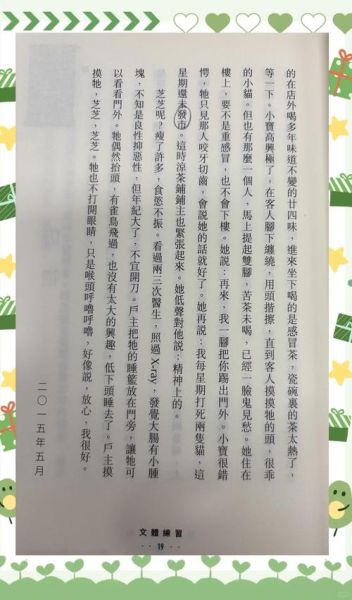 的在店外喝多年味道不變的廿四味，進來坐下喝的是感冒茶，瓷碗裏的茶太熱了，
等一下。小寶高興極了，在客人腳下纏繞，用頭揩擦，直到客人摸摸牠的頭，很乖
的小貓。但也有那麼一個人，馬上提起雙腳，苦茶未喝，已經一臉鬼見愁。她住在
樓上，要不是重感冒，也不會下樓。她說：再來，我一腳把你踢出門外。小寶很錯
愕，牠只見那人咬牙切齒，會說她的話就好了。她再說：我每星期打死兩隻貓，這
星期還未發市。這時涼茶鋪鋪主也緊張起來。她低聲對他說：精神上的。
芝芝呢？瘦了許多，食慾不振。看過兩三次醫生，照過 X-ray，發覺大腸有小腫
塊，不知是良性抑惡性，但年紀大了，不宜開刀。戶主把牠的睡籃放在門旁，讓牠可
以看看門外。牠偶然抬頭，有雀鳥飛過，也沒有太大的興趣，低下頭睡去了。戶主摸
摸牠，芝芝，芝芝。牠也不打開眼睛，只是喉頭呼嚕呼嚕，好像說，放心，我很好。
二〇一五年五月
文體練習
·· 19 ··